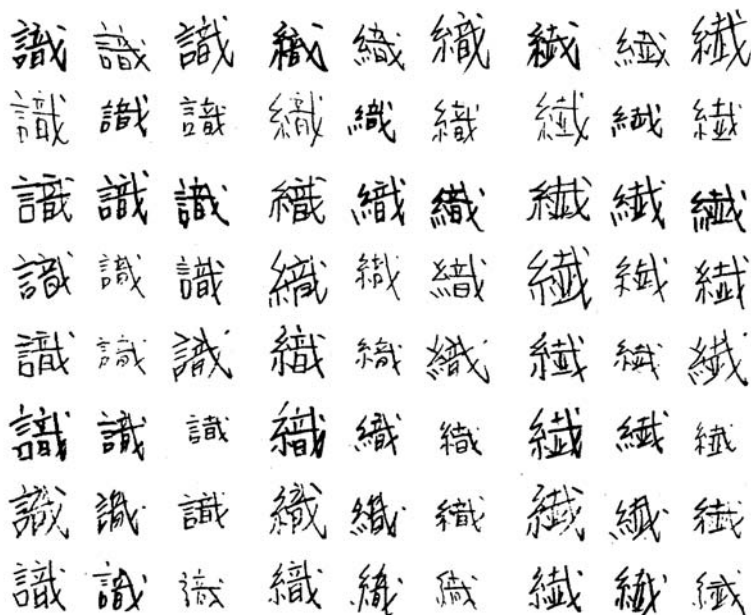 識 識 識 織 織 織 繊 繊 繊
識 識 識 織 織 織 繊 繊 繊
識 識 識 織 織 織 繊 繊 繊
識 識 識 織 織 織 繊 繊 繊
識 識 識 織 織 織 繊 繊 繊
識 識 識 織 織 織 繊 繊 繊
識 識 識 織 織 織 繊 繊 繊
識 識 識 織 織 織 繊 繊 繊